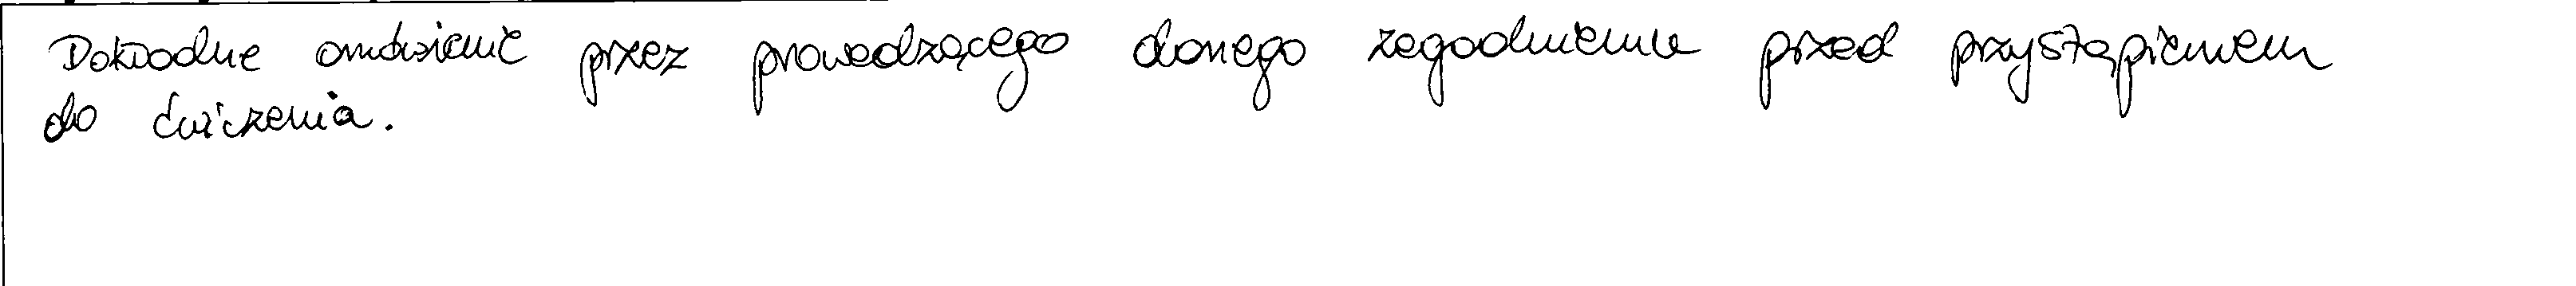 Dokładne omówienie przez prowadzącego danego zagadnienia przed przystąpieniem
do ćwiczenia.